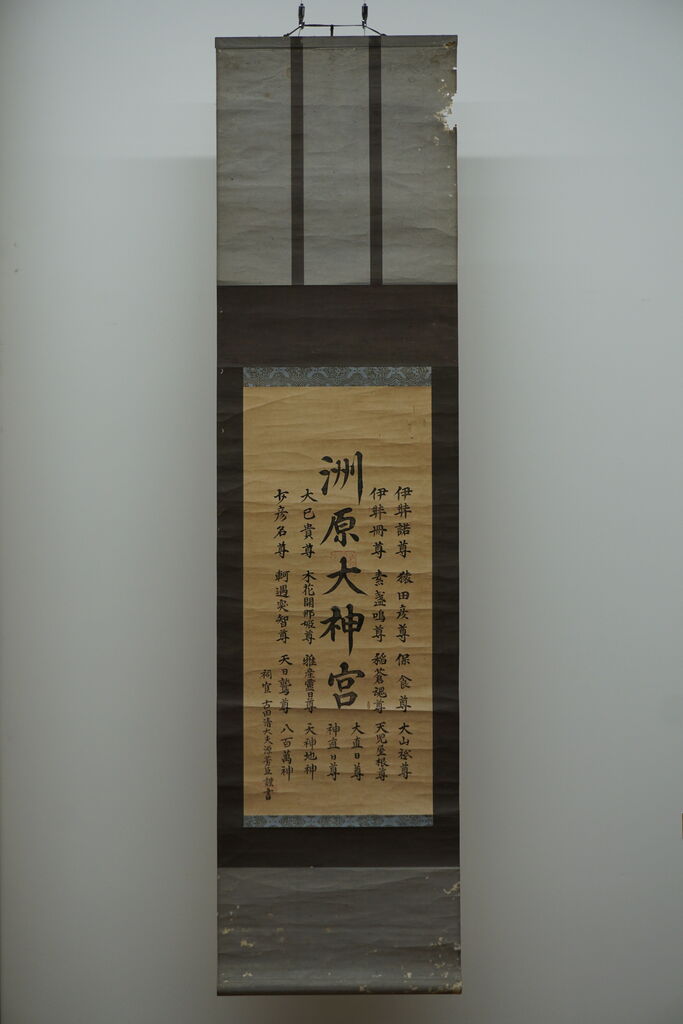 伊弉諾尊 猿田彦尊 保食尊 大山祗尊
伊弉冊尊 素盞嗚尊 稲蒼魂尊 天児屋根尊
大直日尊
洲原大神宮
神直日尊
大己貴尊 木花開耶姫尊 雅産霊日尊 天神地神
少彦名尊 軻遇突智尊 天日鷲尊 八百萬神
祠官 古田清大夫源芳臣謹書